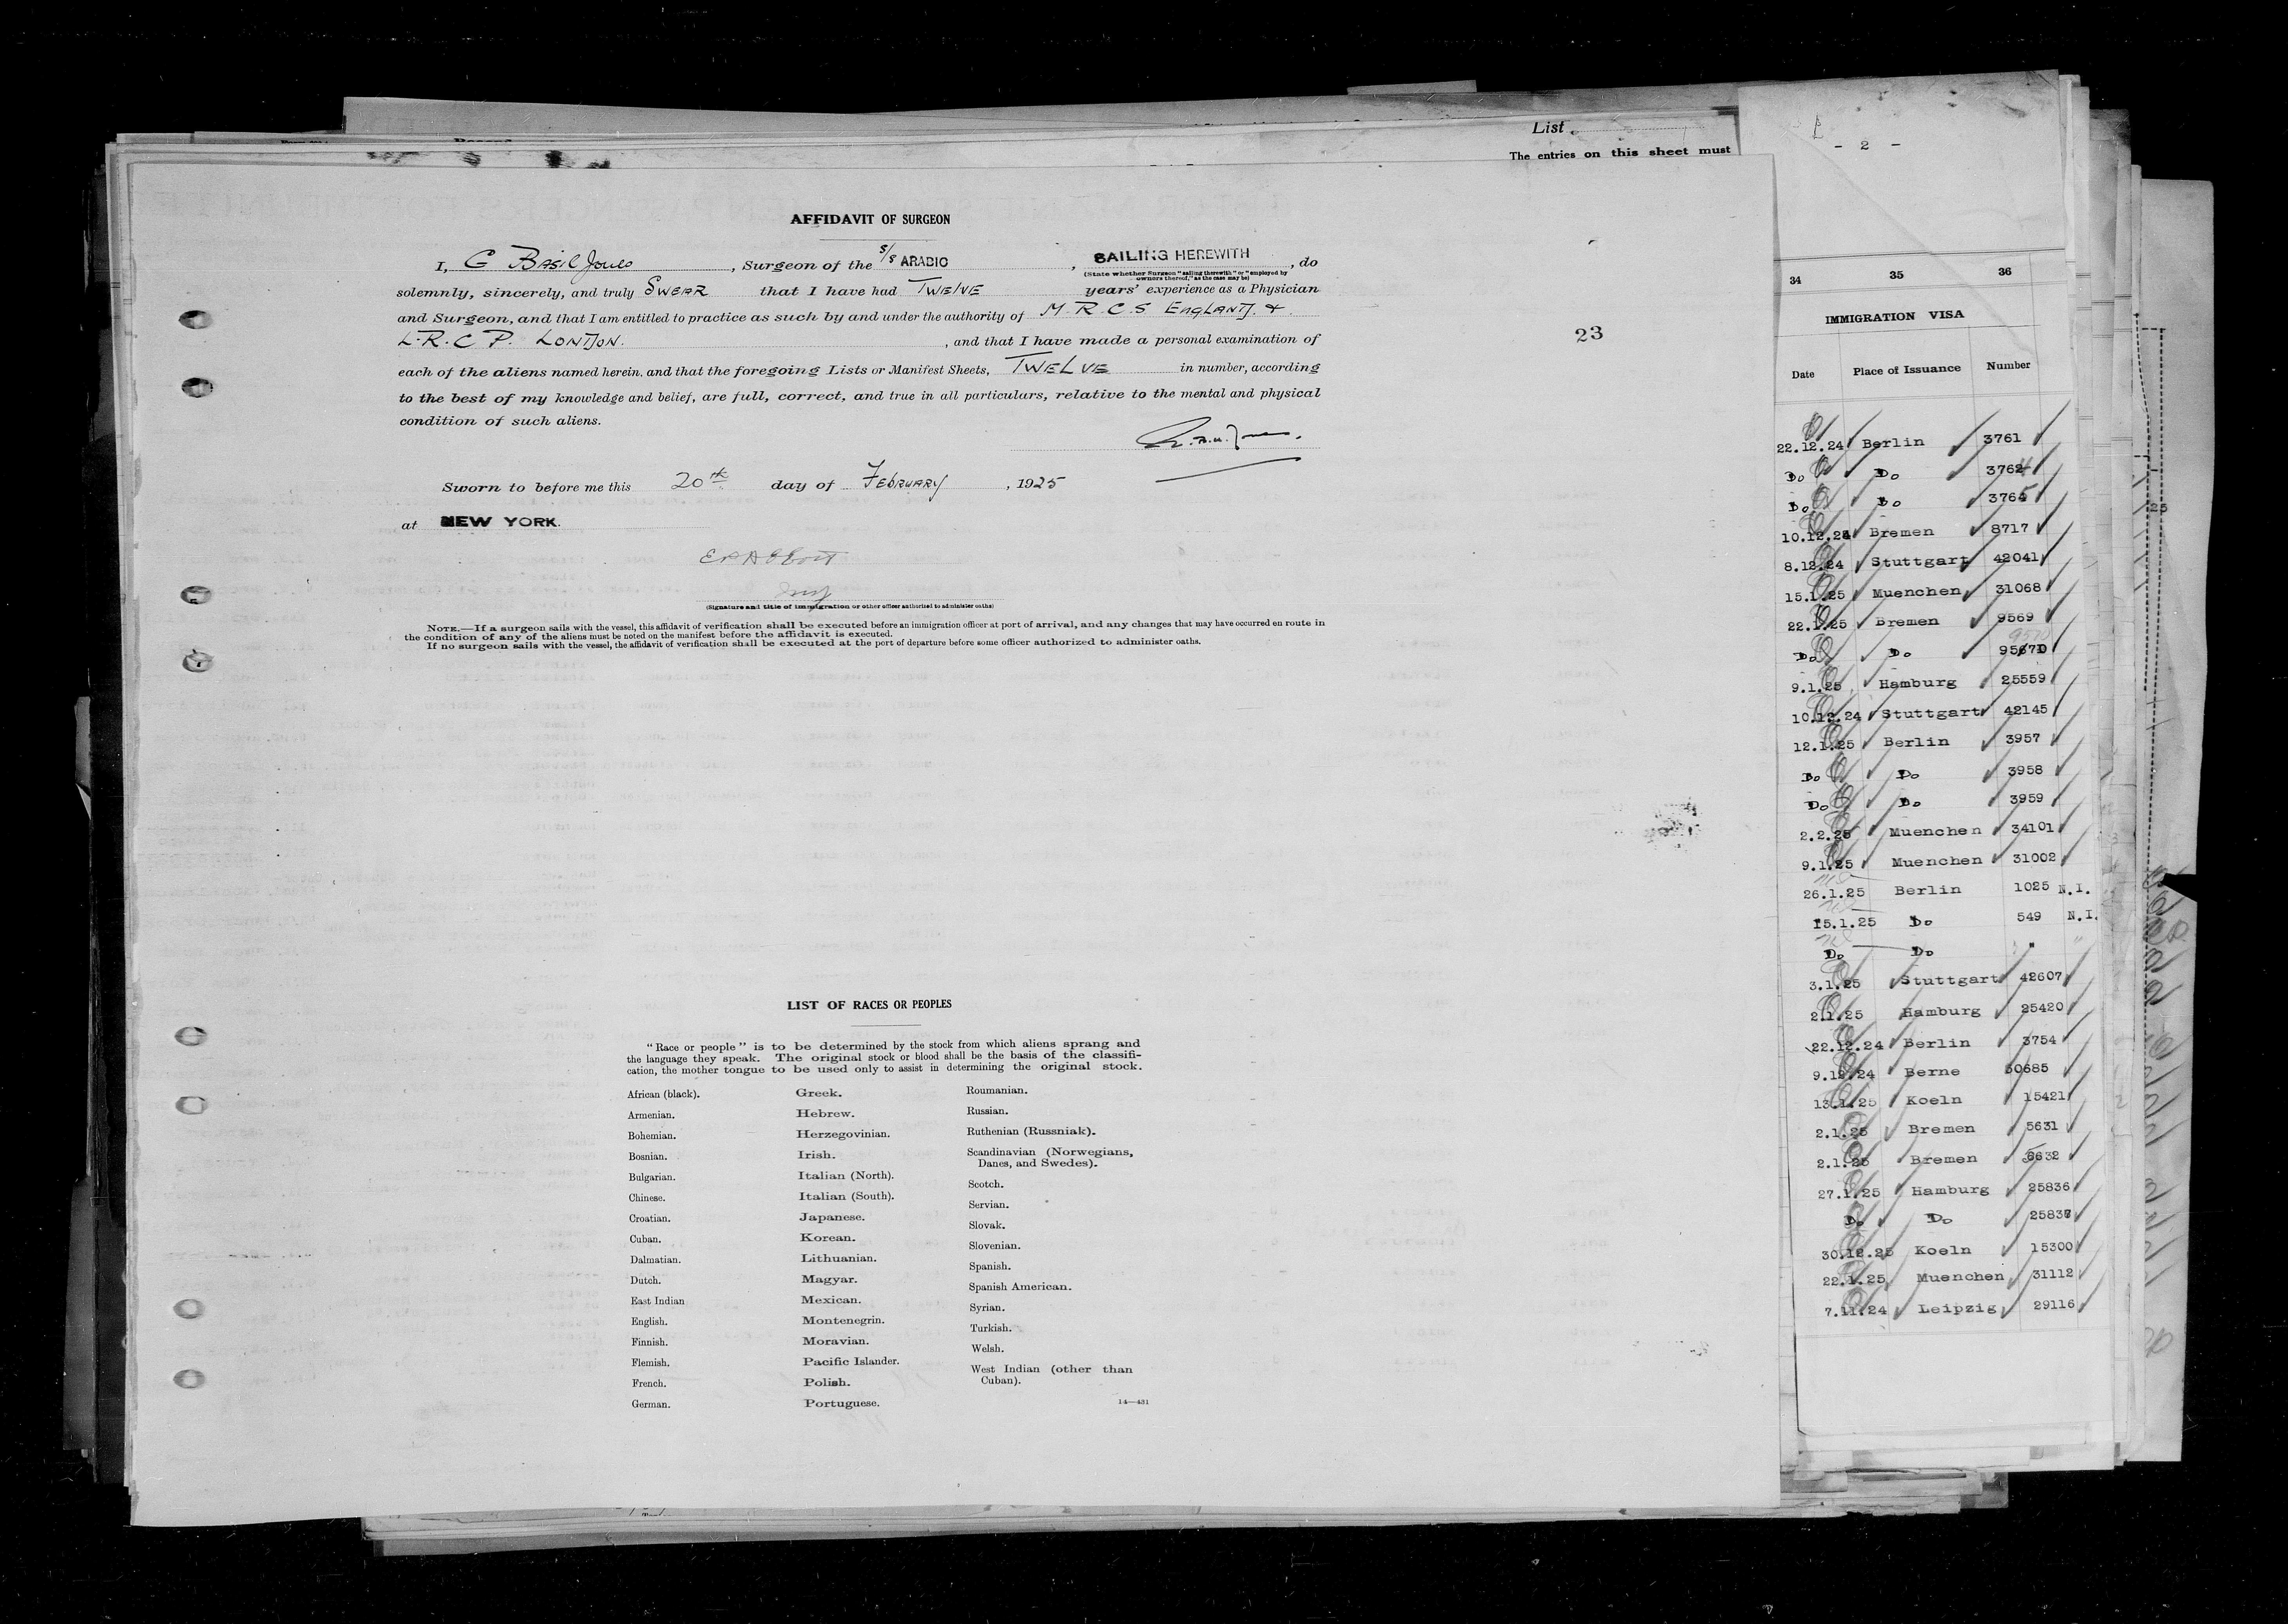 List
The entries on this sheet must
- 2 -
AFFIDAVIT OF SURGEON
I, G Basil Jones, Surgeon of the S/S ARABIC, SAILING HEREWITH, do
(State whether Surgeon "sailing therewith" or "employed by owners thereof," as the case may be)
solemnly, sincerely, and truly SWEAR that I have had TWELVE years' experience as a Physician
and Surgeon, and that I am entitled to practice as such by and under the authority of M.R.C.S. ENGLAND. &
L.R.C.P. LONDON. , and that I have made a personal examination of
each of the aliens named herein, and that the foregoing Lists or Manifest Sheets, TWELVE in number, according
to the best of my knowledge and belief, are full, correct, and true in all particulars, relative to the mental and physical
condition of such aliens.
Sworn to before me this 20th day of FEBRUARY, 1925
at NEW YORK.
(Signature and title of immigration or other officer authorized to administer oaths)
NOTE.—If a surgeon sails with the vessel, this affidavit of verification shall be executed before an immigration officer at port of arrival, and any changes that may have occurred en route in
the condition of any of the aliens must be noted on the manifest before the affidavit is executed.
If no surgeon sails with the vessel, the affidavit of verification shall be executed at the port of departure before some officer authorized to administer oaths.
23
LIST OF RACES OR PEOPLES
"Race or people" is to be determined by the stock from which aliens sprang and
the language they speak. The original stock or blood shall be the basis of the classifi-
cation, the mother tongue to be used only to assist in determining the original stock.
African (black).
Armenian.
Bohemian.
Bosnian.
Bulgarian.
Chinese.
Croatian.
Cuban.
Dalmatian.
Dutch.
East Indian
English.
Finnish.
Flemish.
French.
German.
Greek.
Hebrew.
Herzegovinian.
Irish.
Italian (North).
Italian (South).
Japanese.
Korean.
Lithuanian.
Magyar.
Mexican.
Montenegrin.
Moravian.
Pacific Islander.
Polish.
Portuguese.
Roumanian.
Russian.
Ruthenian (Russniak).
Scandinavian (Norwegians,
Danes, and Swedes).
Scotch.
Servian.
Slovak.
Slovenian.
Spanish.
Spanish American.
Syrian.
Turkish.
Welsh.
West Indian (other than
Cuban).
14—431
34 35 36
IMMIGRATION VISA
Date Place of Issuance Number
22.12.24 Berlin 3761
Do Do 3764
Do Do 3765
10.12.24 Bremen 8717
8.12.24 Stuttgart 42041
15.1.25 Muenchen 31068
22.1.25 Bremen 9569
Do Do 9570
9.1.25 Hamburg 25559
10.12.24 Stuttgart 42145
12.1.25 Berlin 3957
Do Do 3958
Do Do 3959
2.2.25 Muenchen 34101
9.1.25 Muenchen 31002
26.1.25 Berlin 1025 N.I.
15.1.25 Do 549 N.I.
Do Do "
3.1.25 Stuttgart 42607
2.1.25 Hamburg 25420
22.12.24 Berlin 3754
9.12.24 Berne 30685
13.1.25 Koeln 15421
2.1.25 Bremen 5631
2.1.25 Bremen 5632
27.1.25 Hamburg 25836
Do Do 25837
30.12.25 Koeln 15300
22.1.25 Muenchen 31112
7.11.24 Leipzig 29116